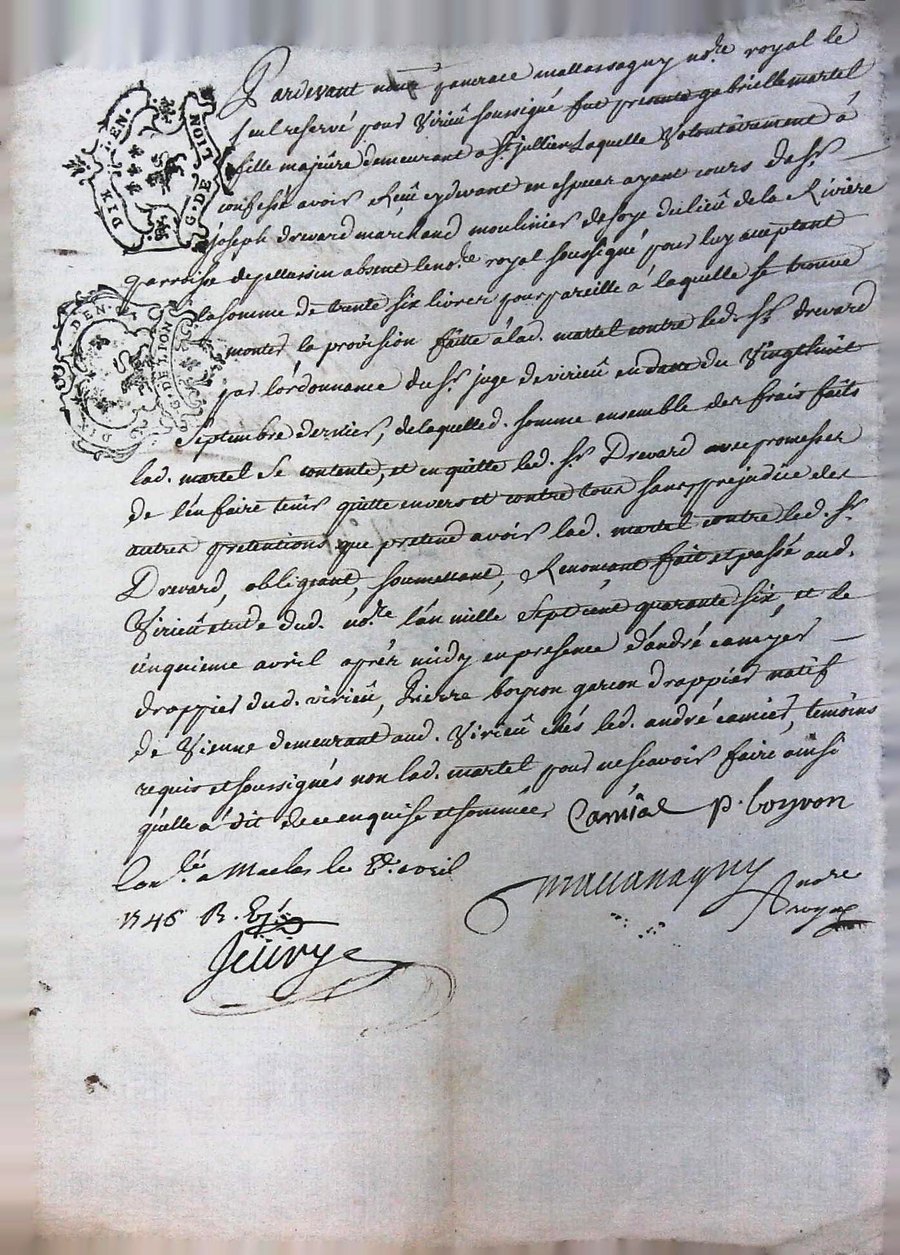 DIX DEN. G. DE LION
Pardevant nous pancrace mallassagny nore. royal le
seul reservé pour Virieü soussigné fut presente gabrielle martel
fille majeure demeurant a St. jullien Laquelle volontairement à
confessé avoir Reçu cydevant en espece ayant cours du Sr.
joseph drevard marchand moulinier de soye du lieu de la Rivière
parroisse de pellassin absent le nore. royal soussigné pour luy acceptant
la somme de trente six livres pour pareille à laquelle se trouve
monter la provision faitte à lad. martel contre led. Sr. drevard
DIX DEN. G. DE LION
par l'ordonnance du Sr. juge de virieü en datte du Vingthuit
Septembre dernier, de laquelle d. somme ensemble des frais faits
lad. martel se contente, et en quitte led. Sr. Drevard avec promesses
de l'en faire tenir quitte envers et contre tous sans prejudice des
autres pretentions que pretend avoir lad. martel contre led. Sr.
Drevard, obligeant, soumettant, Renoncant fait et passé aud.
Virieü etude dud. nore. l'an mille Sept cent quarante six, et le
cinquieme avril après midy en presence d'andré camier
drappier dud. virieü, Pierre boyron garcon drappier natif
de Vienne demeurant aud. Virieü chés led. andré camier, temoins
requis et soussignés non lad. martel pour ne scavoir faire ainsi
qu'elle a dit de ce enquise et sommée
p. boyvon
Conlé. a Maclas le 8e. avril
nore
royal
1746 R.